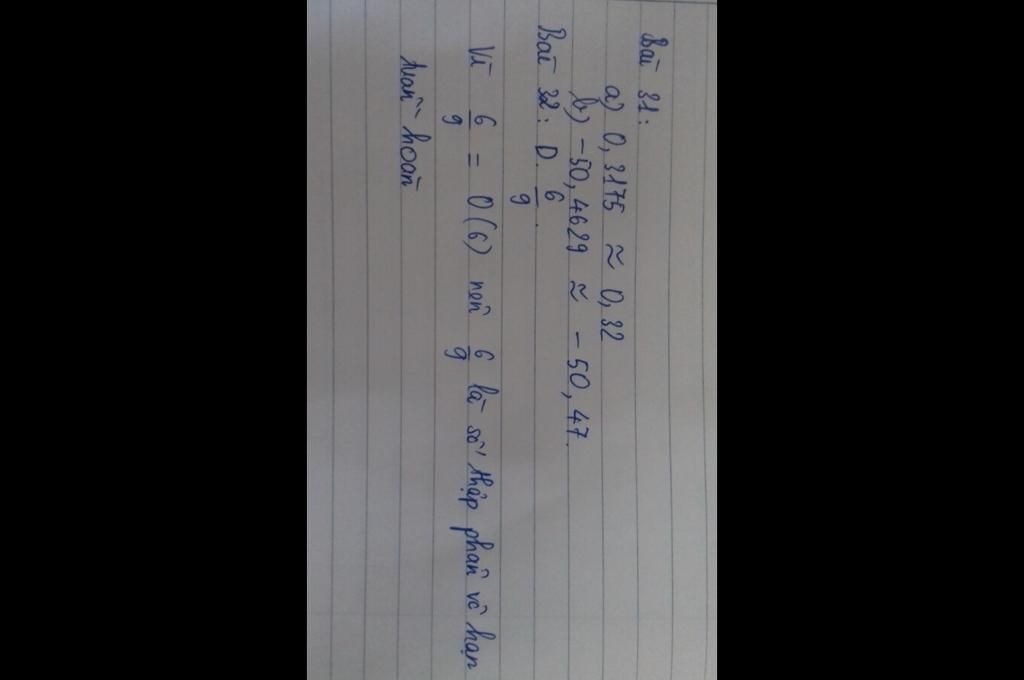 Bài 31:
a) 0,3175 ≈ 0,32
b) -50,4629 ≈ -50,47.
Bài 32: D. 6/9.
Vì 6/9 = 0(6) nên 6/9 là số thập phân vô hạn
tuần hoàn